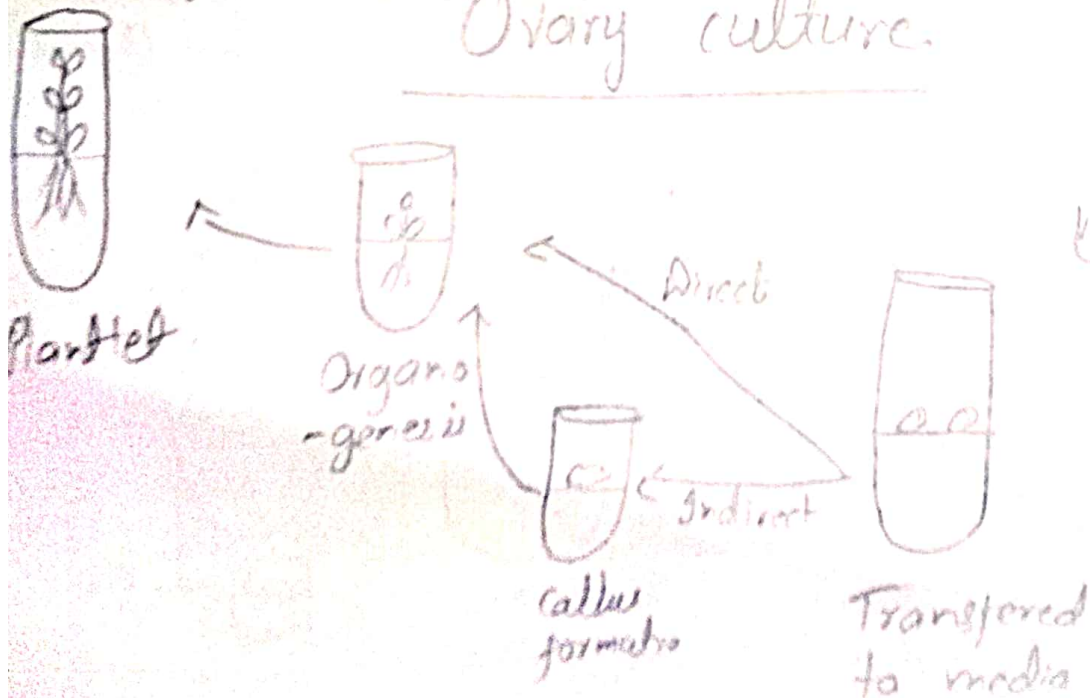 Ovary culture.
Plantlet
Direct
Organo
-genesis
Indirect
Callus
formatio
Transfered
to media